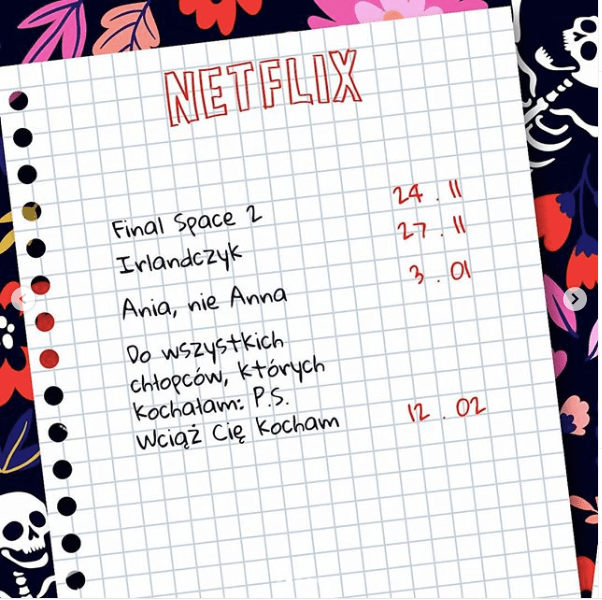 NETFLIX
Final Space 2 24.11
Irlandczyk 27.11
Ania, nie Anna 3.01
Do wszystkich
chłopców, których
kochałam: P.S.
Wciąż Cię kocham 12.02